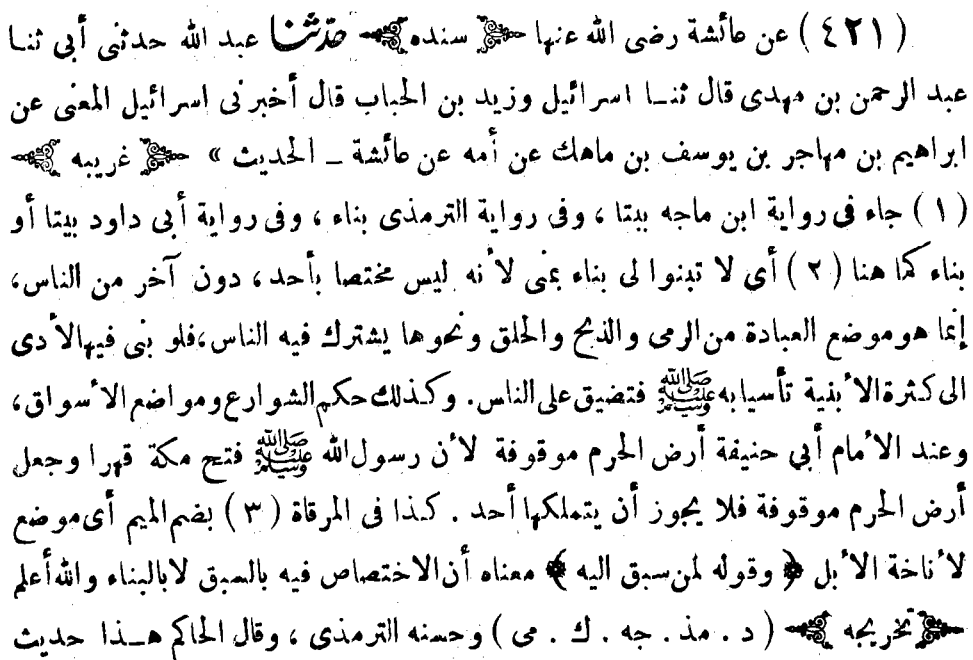 ( ٤٢١ ) عن عائشة رضى الله عنها ﴿ سنده ﴾ حدّثنا عبد الله حدثنى أبى ثنا
عبد الرحمن بن مهدى قال ثنا اسرائيل وزيد بن الحباب قال أخبرنى اسرائيل المعنى عن
ابراهيم بن مهاجر بن يوسف بن ماهك عن أمه عن عائشة ـ الحديث » ﴿ غريبه ﴾
( ١ ) جاء فى رواية ابن ماجه بيتا ، وفى رواية الترمذى بناء ، وفى رواية أبى داود بيتا أو
بناء كما هنا ( ٢ ) أى لا تبنوا لى بناء بمنى لأنه ليس مختصا بأحد ، دون آخر من الناس،
إنما هو موضع العبادة من الرمى والذبح والحلق ونحوها يشترك فيه الناس،فلو بنى فيها لأدى
الى كثرة الأبنية تأسيا به ﷺ فتضيق على الناس. وكذلك حكم الشوارع ومواضع الأسواق،
وعند الأمام أبي حنيفة أرض الحرم موقوفة لأن رسول الله ﷺ فتح مكة قهرا وجعل
أرض الحرم موقوفة فلا يجوز أن يتملكها أحد . كذا فى المرقاة ( ٣ ) بضم الميم أى موضع
لأناخة الأبل ﴿ وقوله لمن سبق اليه ﴾ معناه أن الاختصاص فيه بالسبق لا بالبناء والله أعلم
﴿ تخريجه ﴾ ( د . مذ . جه . ك . مى ) وحسنه الترمذى ، وقال الحاكم هـذا حديث